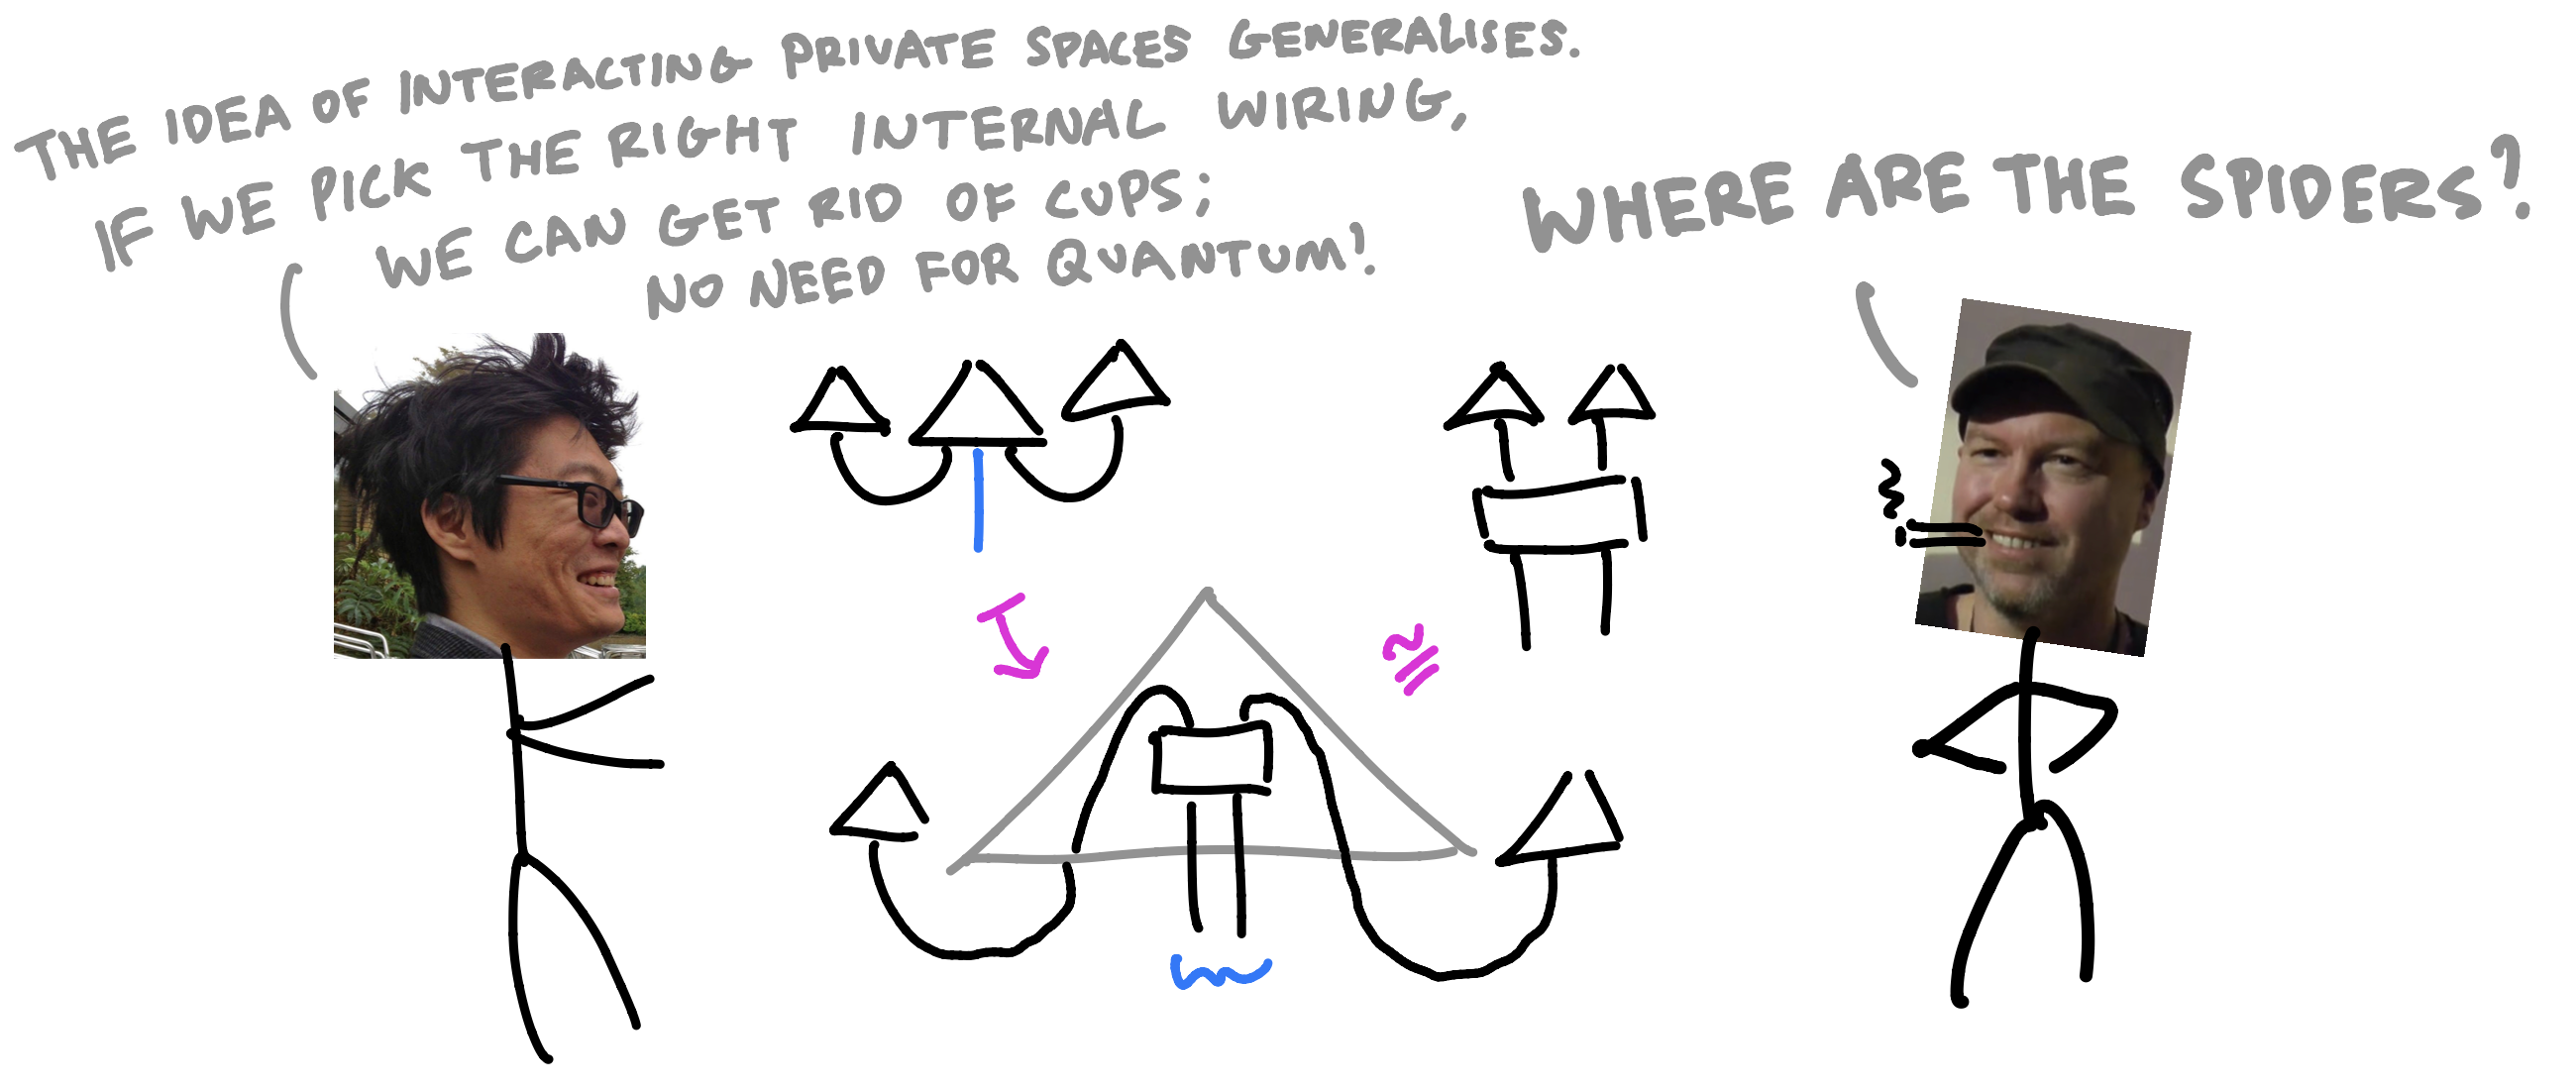 THE IDEA OF INTERACTING PRIVATE SPACES GENERALISES.
IF WE PICK THE RIGHT INTERNAL WIRING,
WE CAN GET RID OF CUPS;
NO NEED FOR QUANTUM!
WHERE ARE THE SPIDERS?
≅